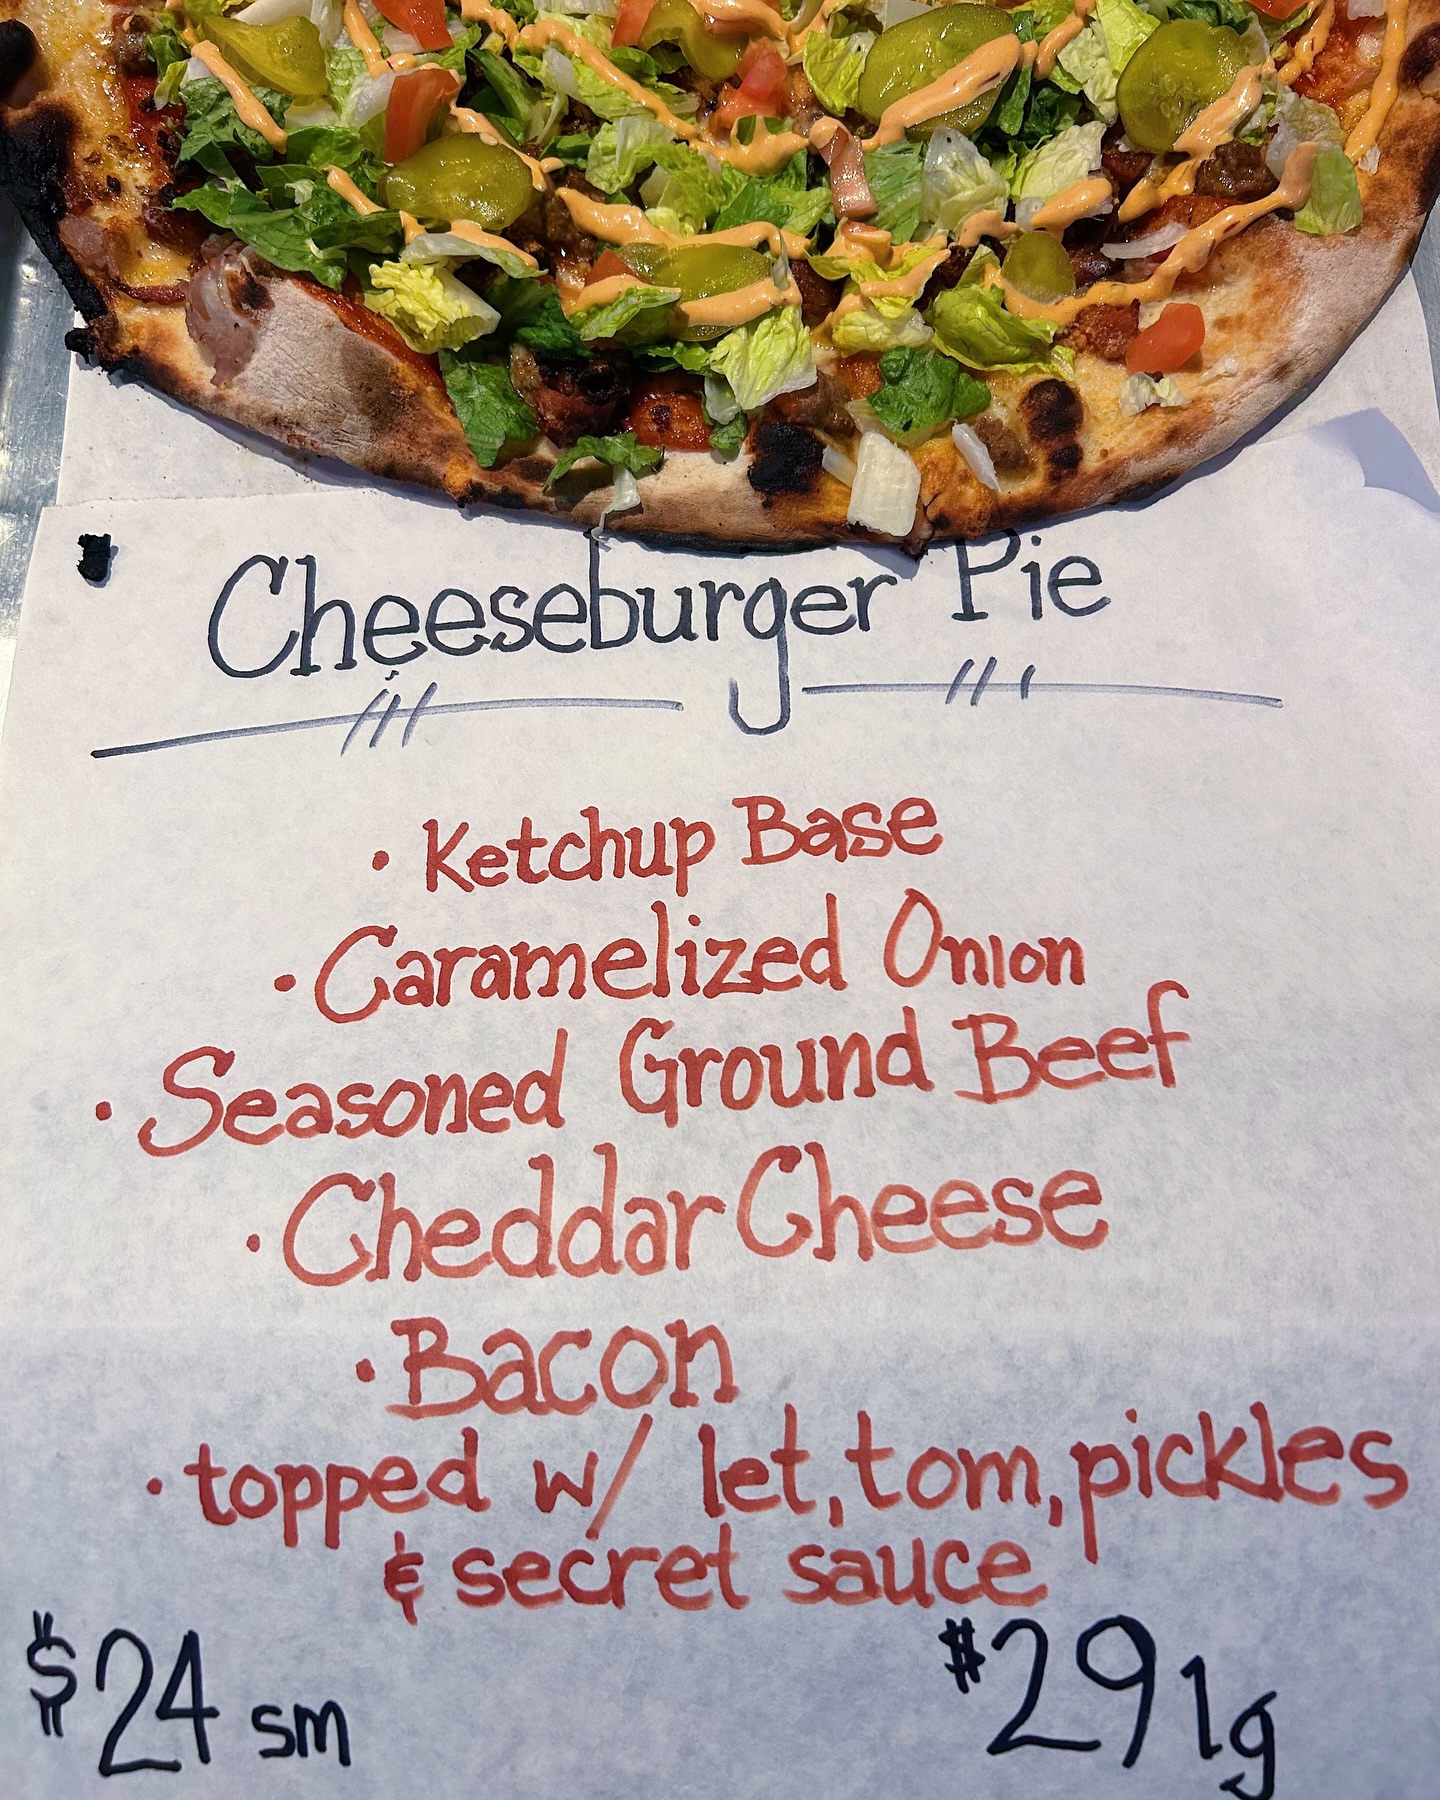 Cheeseburger Pie
• Ketchup Base
• Caramelized Onion
• Seasoned Ground Beef
• Cheddar Cheese
• Bacon
• topped w/ let, tom, pickles
& secret sauce
$24 sm $29 lg